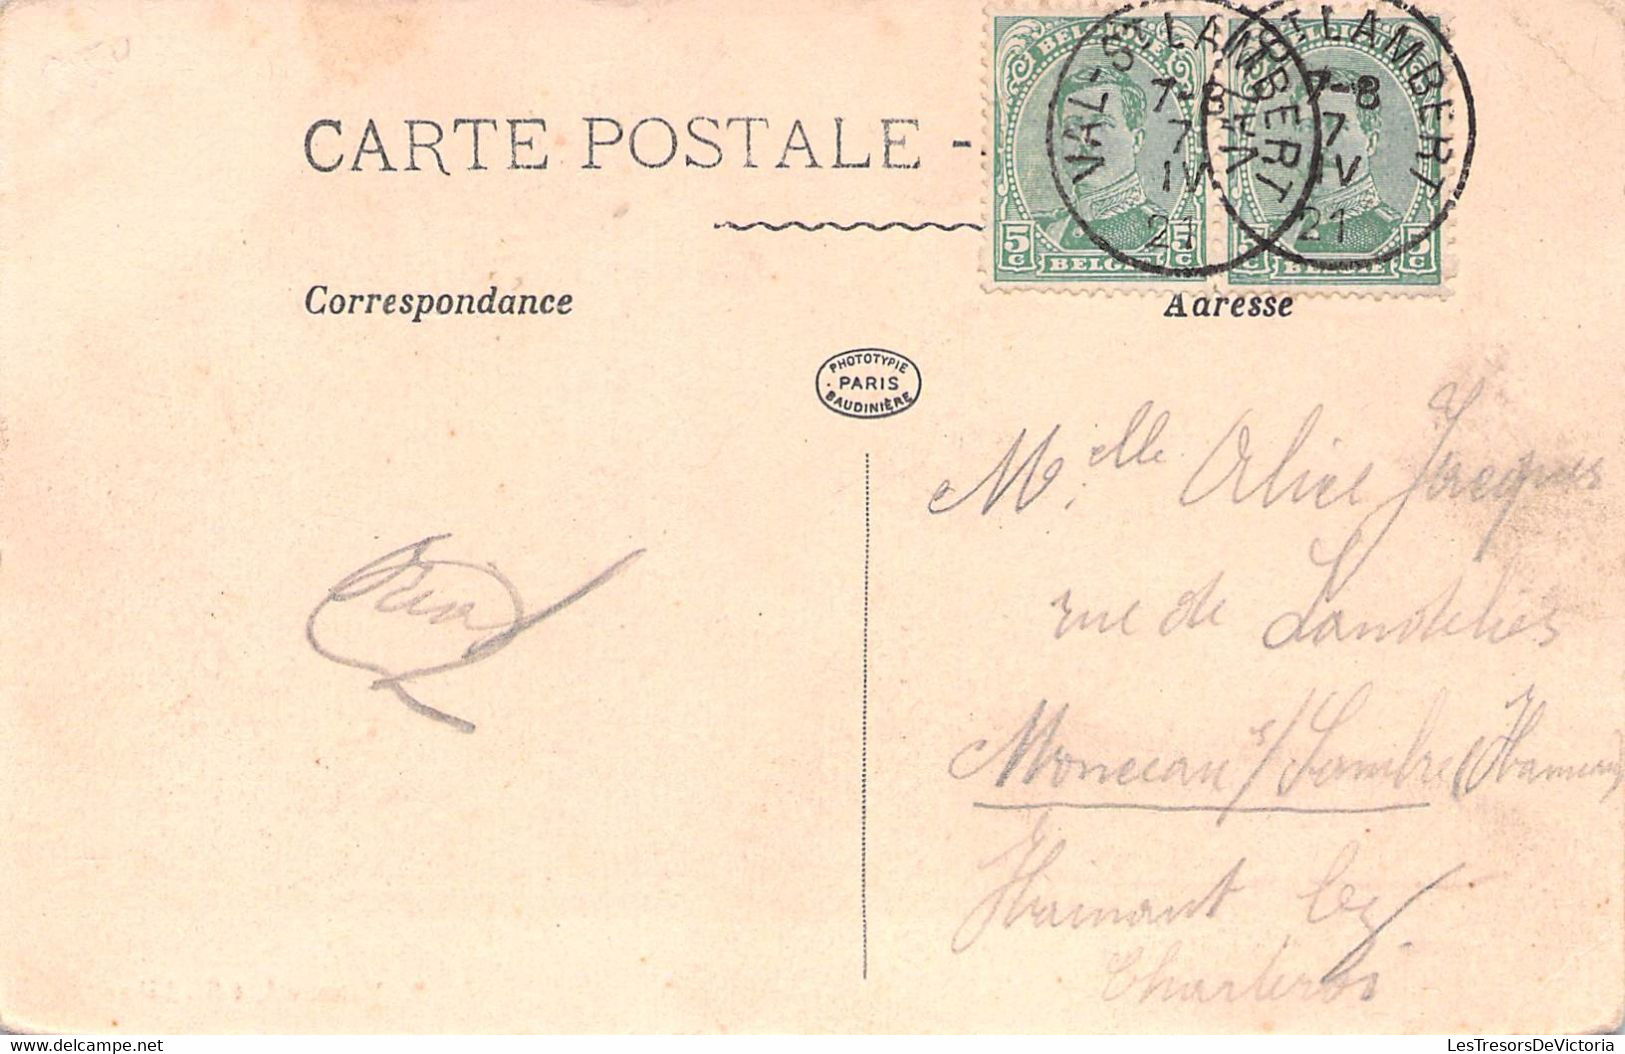 BELGIQUE BELGIQUE
VAL-ST LAMBERT VAL-ST LAMBERT
7-8 7-8
7 7
IV IV
21 21
5 C BELGIË 5 C 5 C BELGIË 5 C
CARTE POSTALE -
Correspondance
Adresse
PHOTOTYPIE
PARIS
BAUDINIÈRE
Melle Alice Jacques
rue de Landelies
Monceau s/Sambre (Hainaut)
Hainaut lez
Charleroi
LesTresorsDeVictoria